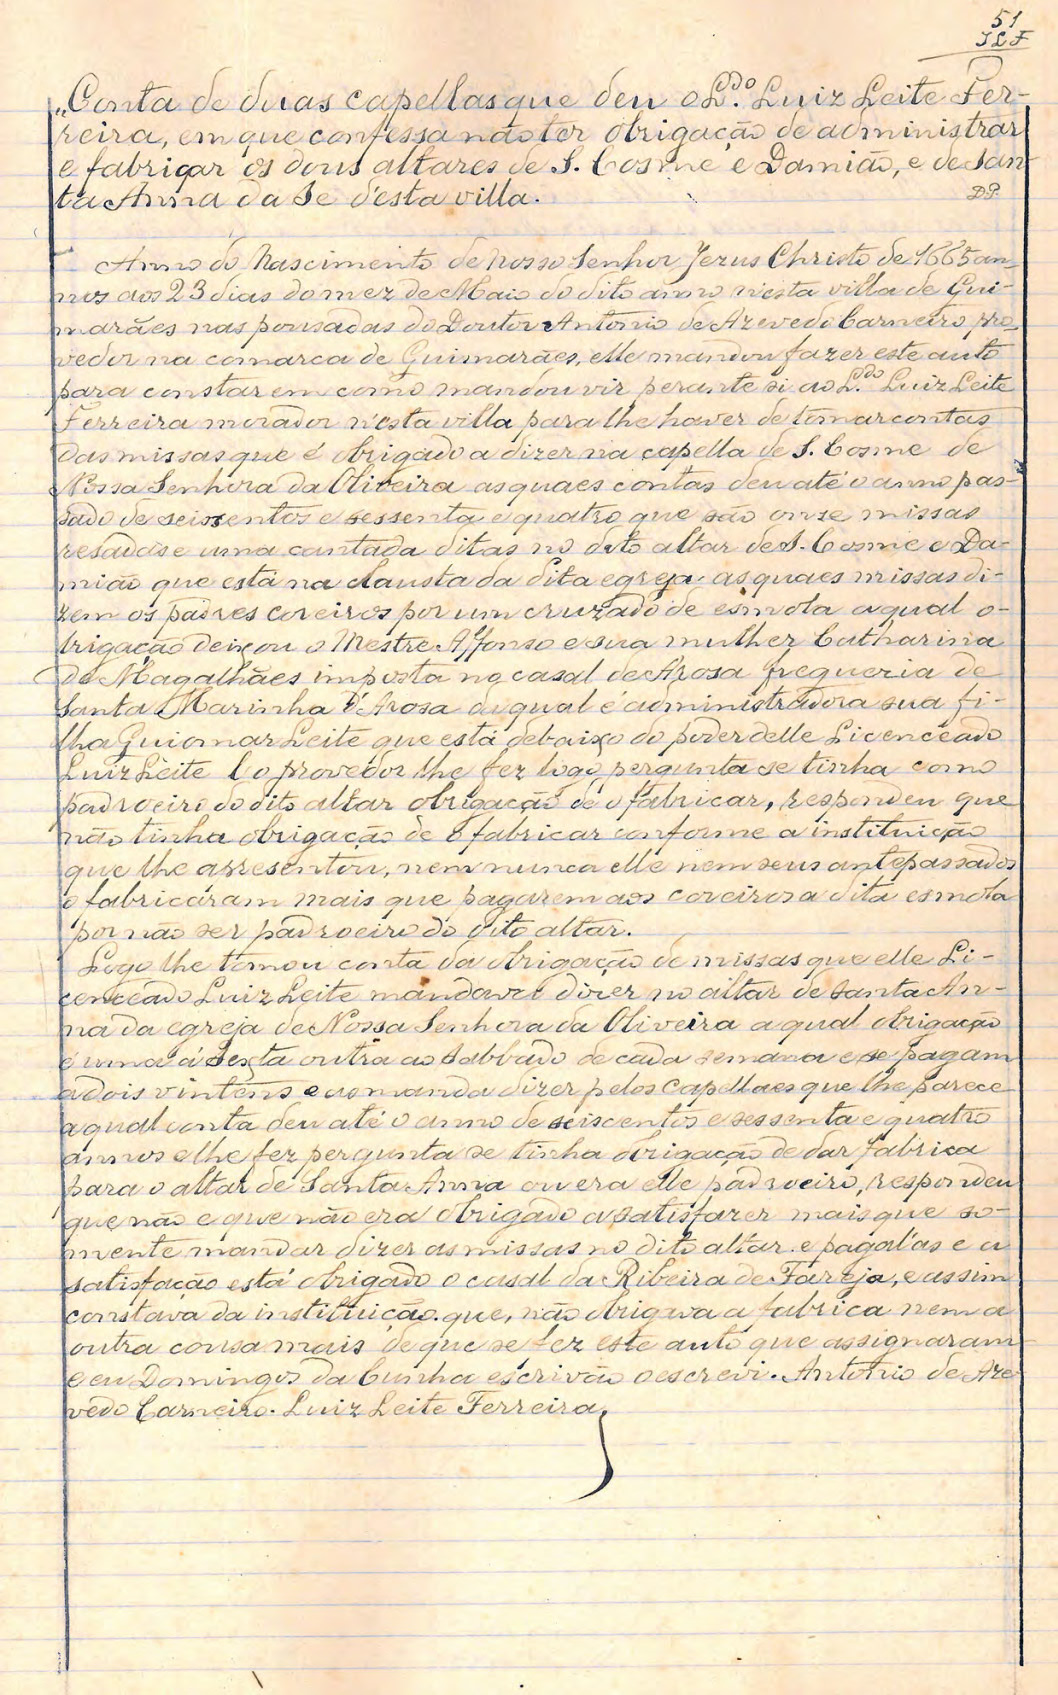 51
JLF
"Conta de duas capellas que deu o L.do Luiz Leite Fer-
reira, em que confessa não ter obrigação de administrar
e fabriçar os dous altares de S. Cosme e Damião, e de San
ta Anna da Sé d'esta villa.
D.P.
Anno do Nascimento de Nosso Senhor Jezus Christo de 1665 an-
nos aos 23 dias do mez de Maio do dito anno n'esta villa de Gui-
marães nas pousadas do Doutor Antonio de Azevedo Carneiro pro-
vedor na comarca de Guimarães, elle mandou fazer este auto
para constar em como mandou vir perante si ao L.do Luiz Leite
Ferreira morador n'esta villa para lhe haver de tomar contas
das missas que é obrigado a dizer na capella de S. Cosme de
Nossa Senhora da Oliveira as quaes contas deu até o anno pas-
sado de seiscentos e sessenta e quatro que são onze missas
resadas e uma cantada ditas no dito altar de S. Cosme e Da-
mião que está na claustra da dita egreja as quaes missas di-
zem os padres coreiros por um cruzado de esmola a qual o-
brigação deixou o Mestre Affonso e sua mulher Catharina
de Magalhães imposta no casal de Arosa freguezia de
Santa Marinha d'Arosa da qual é administradora sua fi-
lha Guiomar Leite que está debaixo do poder delle Licenceado
Luiz Leite E o provedor lhe fez logo pergunta se tinha como
padroeiro do dito altar obrigação de o fabricar, respondeu que
não tinha obrigação de o fabricar conforme a instituição
que lhe apresentou, nem nunca elle nem seus antepassados
o fabricáram mais que pagarem aos coreiros a dita esmola
por não ser padroeiro do dito altar.
Logo lhe tomou conta da obrigação de missas que elle Li-
cenceado Luiz Leite mandava dizer no altar de Santa An-
na da egreja de Nossa Senhora da Oliveira a qual obrigação
é uma á sexta outra ao sabbado de cada semana e se pagam
a dois vintens e as manda dizer pelos capellaes que lhe parece
a qual conta deu até o anno de seiscentos e sessenta e quatro
annos e lhe fez pergunta se tinha obrigação de dar fabrica
para o altar de Santa Anna ou era elle padroeiro, respondeu
que não e que não era obrigado a satisfazer mais que so-
mente mandar dizer as missas no dito altar e pagal'as e a
satisfação está obrigado o casal da Ribeira de Fareja, e assim
constava da instituição que, não obrigava a fabrica nem a
outra cousa mais de que se fez este auto que assignaram
e eu Domingos da Cunha escrivão o escrevi. Antonio de Aze
vedo Carneiro. Luiz Leite Ferreira,